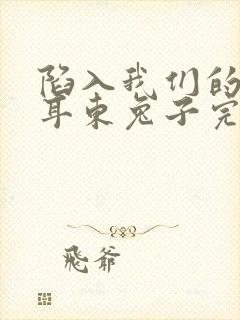 陷入我们的
耳东兔子完
飛爷